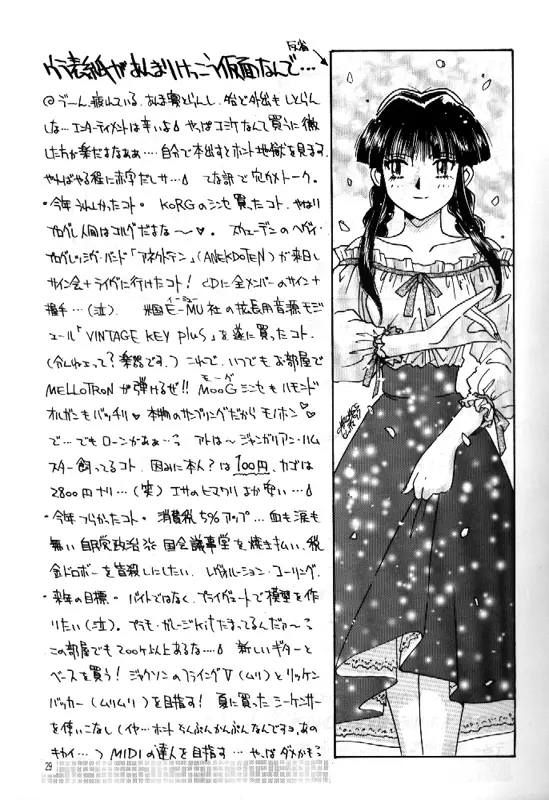 反省
ウラ表紙があんまりけっこう仮面なんで…
◎づーん、疲れている。あま寝とらんし、殆ど外出もしとらん
しな…エンターティメントは辛いよ やっぱコミケなんて買うに徹
した方が楽だよなぁぁ…自分で本出すとホント地獄を見ます。
やればやる程に赤字だしサ… てな訳で穴うめトーク。
・今年うれしかったコト。 KORGのシンセ買ったコト、やはり
プログレ人間はコルグだよな～♥。スウェーデンのヘヴィ・
プログレッシヴ・バンド「アネクドテン」(ANEKDOTEN)が来日し
サイン会+ライヴに行けたコト! CDに全メンバーのサイン+
握手…(泣)。 米国E-MU社の拡張用音源モジ
イーミュー
ュール「VINTAGE KEY Plus」を遂に買ったコト。
(分んねぇって?楽器です。)これで、いつでもお部屋で
MELLOTRONが弾けるぜ!! MOOGシンセもハモンド
モーグ
オルガンもバッチリ♥ 本物のサンプリングだからモノホン♥
で…でもローンがあぁ…? アトは～ジャンガリアン・ハム
スター飼ってるコト。因みに本人?は100円、カゴは
2800円ナリ…(笑)エサのヒマワリより安い…
・今年つらかったコト。 消費税5%アップ…血も涙も
無い自民党政治 国会議事堂を焼き払い、税
金ドロボーを皆殺しにしたい。レヴォルーション・コーリング。
・来年の目標。 バイトではなく、プライヴェートで模型を作
りたい(泣)。プラモ・ガレージkitたまってるんだァ～?
この部屋でも200ヶ以上あるな…
新しいギターと
ベースを買う! ジャクソンのフライングV(ムリ)とリッケン
バッカー(ムリムリ)を目指す! 夏に買ったシーケンサー
を使いこなし(イヤ…ホントちんぷんかんぷんなんですョ、あの
キカイ…)MIDIの達人を目指す…やっぱダメかも?
29